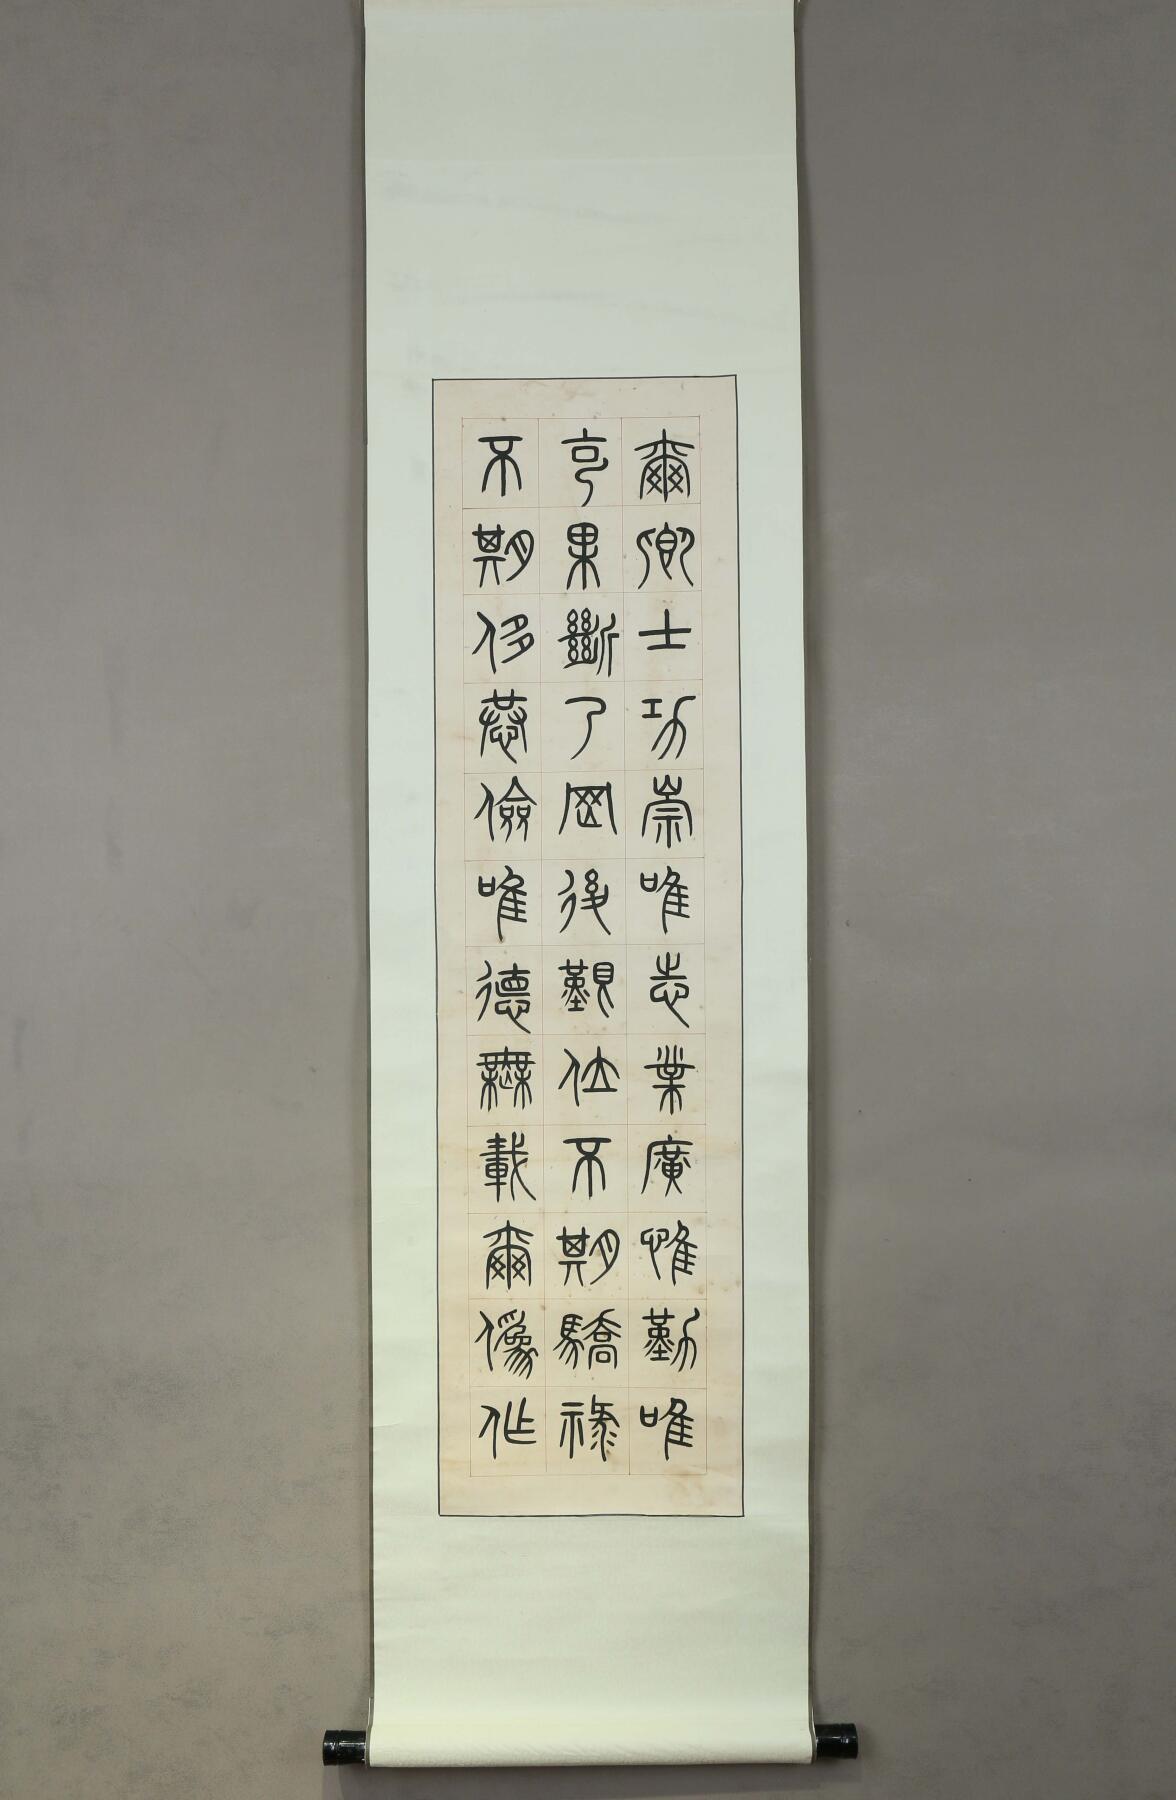 爾卿士功崇唯志業廣惟勤唯
克果斷乃罔後艱位不期驕祿
不期侈恭儉唯德無載爾僞作